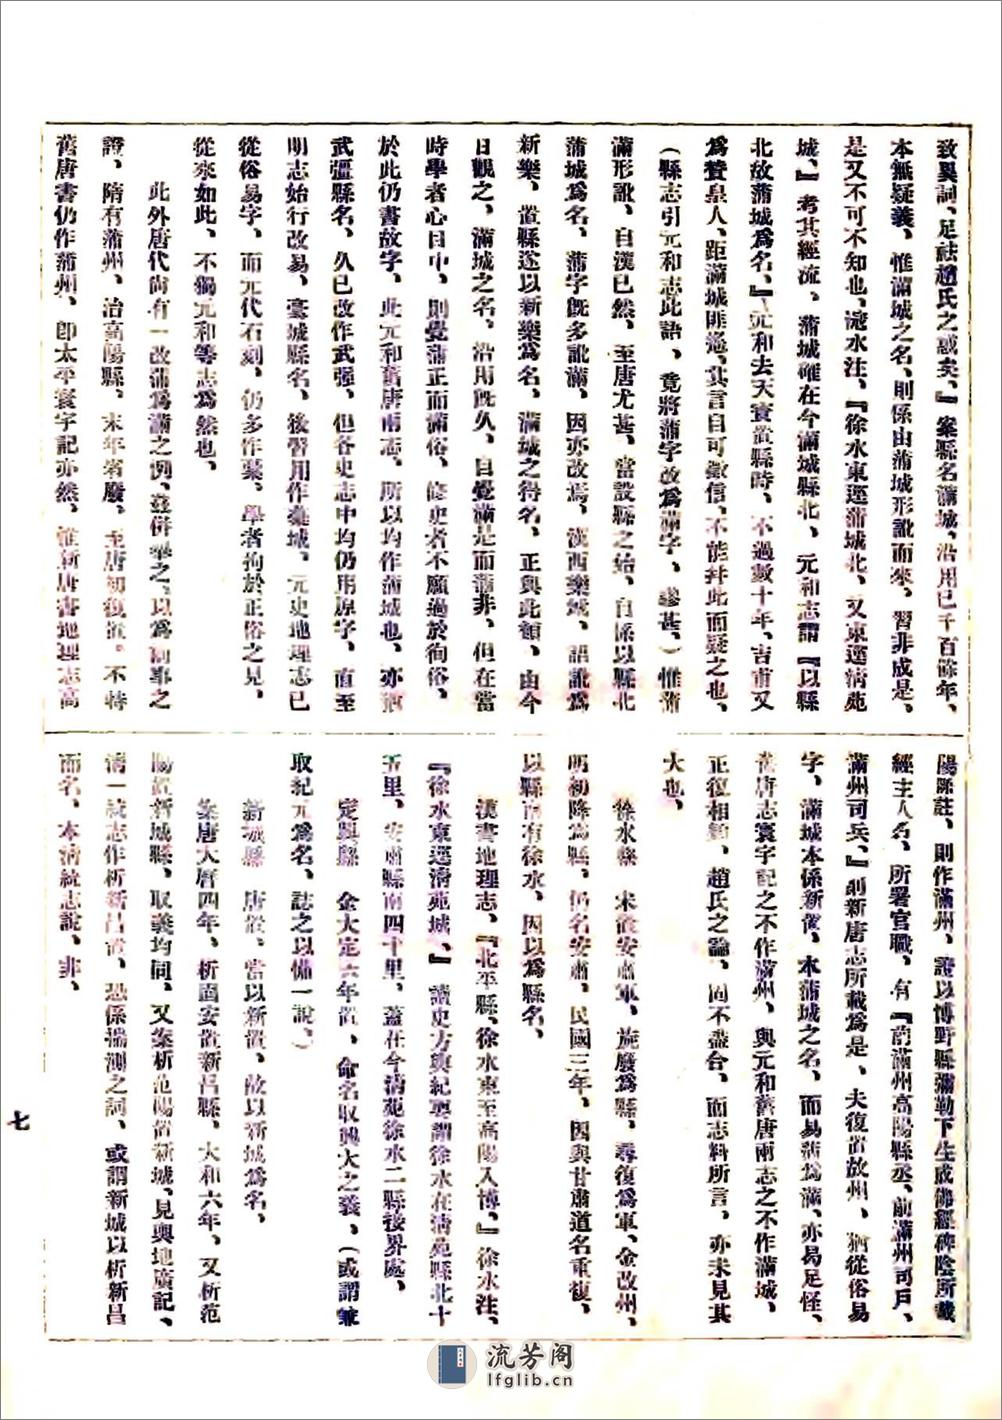 致異詞、足祛趙氏之惑矣、』案縣名滿城、沿用已千百餘年、
本無疑義、惟滿城之名、則係由蒲城形訛而來、習非成是、
是又不可不知也、滱水注、『徐水東逕蒲城北、又東逕清苑
城、』考其經流、蒲城確在今滿城縣北、元和志謂『以縣
北故蒲城爲名、』元和去天寶置縣時、不過數十年、吉甫又
爲贊皇人、距滿城匪遙、其言自可徵信、不能并此而疑之也、
（縣志引元和志此語、竟將蒲字改爲滿字、謬甚、）惟蒲
滿形訛、自漢已然、至唐尤甚、當設縣之始、自係以縣北
蒲城爲名、蒲字既多訛滿、因亦改焉、漢西樂城、語訛爲
新樂、置縣遂以新樂爲名、滿城之得名、正與此類、由今
日觀之、滿城之名、沿用既久、自覺滿是而蒲非、但在當
時學者心目中、則覺蒲正而滿俗、修史者不願過於徇俗、
於此仍書故字、此元和舊唐兩志、所以均作蒲城也、亦猶
武彊縣名、久已改作武强、但各史志中均仍用原字、直至
明志始行改易、藁城縣名、後習用作藁城、元史地理志已
從俗易字、而元代石刻、仍多作槀、學者拘於正俗之見、
從來如此、不獨元和等志爲然也、
此外唐代尚有一改蒲爲滿之例、茲併舉之、以爲前事之
證、隋有蒲州、治高陽縣、末年省廢、至唐初復置、不特
舊唐書仍作蒲州、卽太平寰宇記亦然、惟新唐書地理志高
陽縣註、則作滿州、證以博野縣彌勒下生成佛經碑陰所載
經主人名、所署官職、有『前滿州高陽縣丞、前滿州司戶、
滿州司兵、』則新唐志所載爲是、夫復置故州、猶從俗易
字、滿城本係新置、本蒲城之名、而易蒲爲滿、亦曷足怪、
舊唐志寰宇記之不作滿州、與元和舊唐兩志之不作滿城、
正復相類、趙氏之論、固不盡合、而志料所言、亦未見其
大也、
徐水縣　宋置安肅軍、旋廢爲縣、尋復爲軍、金改州、
明初降爲縣、仍名安肅、民國三年、因與甘肅道名重復、
以縣南有徐水、因以爲縣名、
漢書地理志、『北平縣、徐水東至高陽入博、』徐水注、
『徐水東逕清苑城、』讀史方輿紀要謂徐水在清苑縣北十
五里、安肅縣南四十里、蓋在今清苑徐水二縣接界處、
定興縣　金大定六年置、命名取興大之義、（或謂兼
取紀元爲名、誌之以備一說、）
新城縣　唐置、當以新置、故以新城爲名、
案唐大曆四年、析固安置新昌縣、大和六年、又析范
陽置新城縣、取義均同、又案析范陽置新城、見輿地廣記、
清一統志作析新昌置、恐係揣測之詞、或謂新城以析新昌
而名、本清統志說、非、
七
流芳阁
lfglib.cn